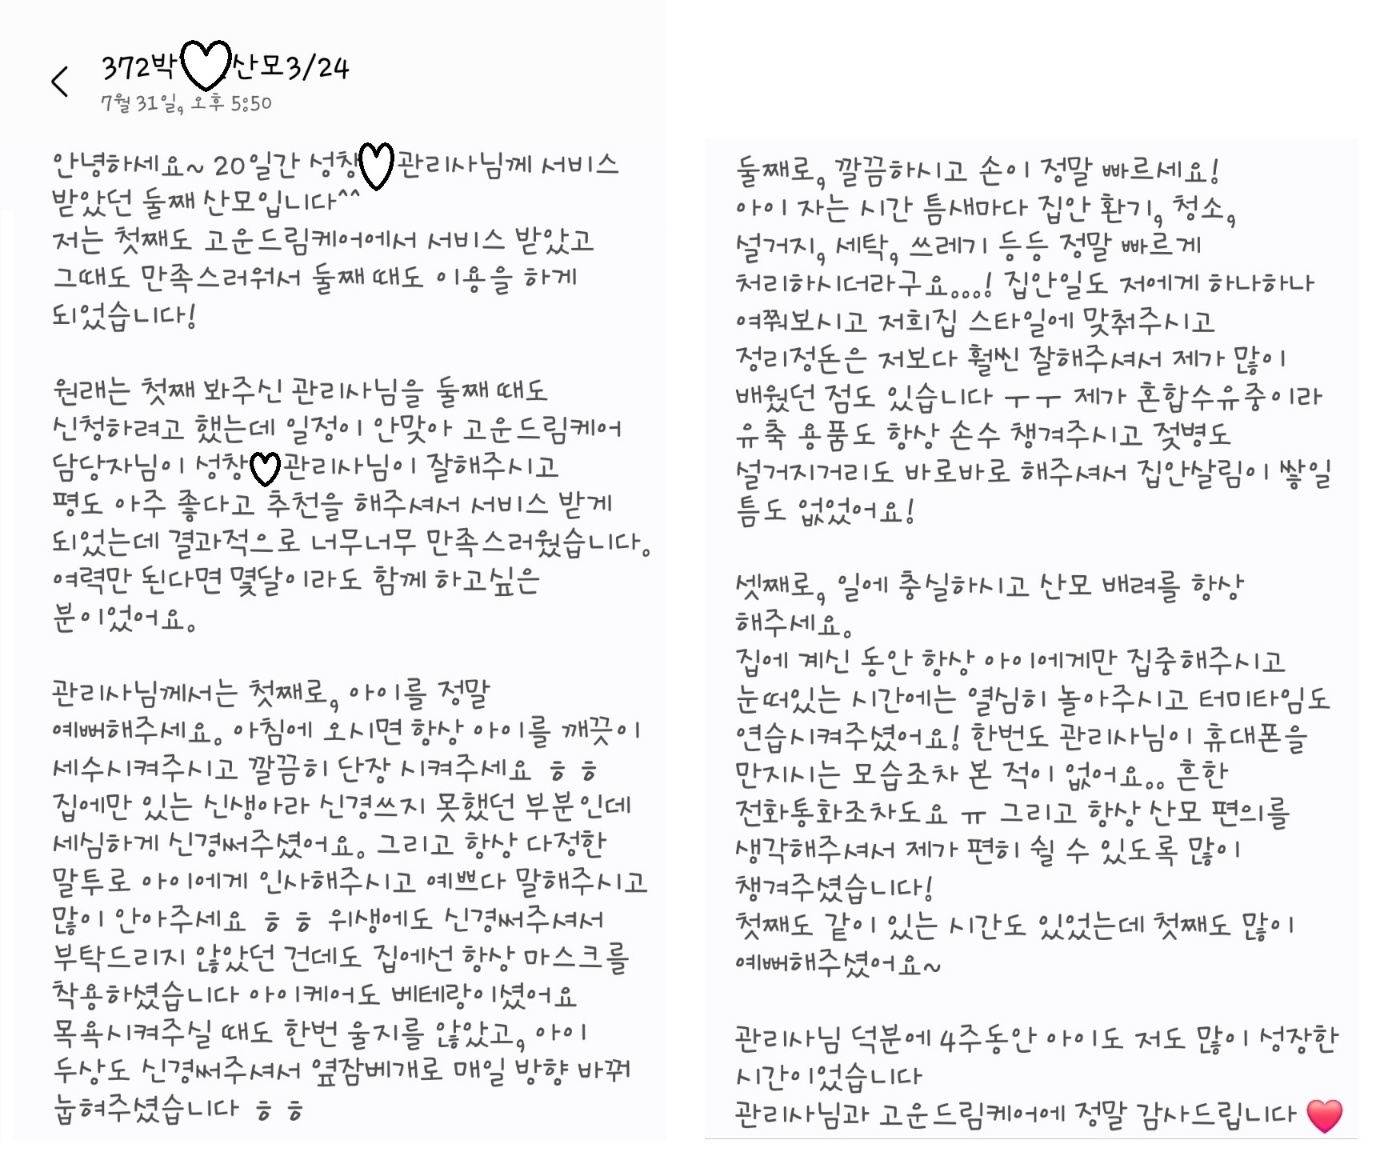 372박 산모3/24
7월 31일, 오후 5:50
안녕하세요~ 20일간 성창 관리사님께 서비스
받았던 둘째 산모입니다^^
저는 첫째도 고운드림케어에서 서비스 받았고
그때도 만족스러워서 둘째 때도 이용을 하게
되었습니다!
원래는 첫째 봐주신 관리사님을 둘째 때도
신청하려고 했는데 일정이 안맞아 고운드림케어
담당자님이 성창 관리사님이 잘해주시고
평도 아주 좋다고 추천을 해주셔서 서비스 받게
되었는데 결과적으로 너무너무 만족스러웠습니다.
여력만 된다면 몇달이라도 함께 하고싶은
분이었어요.
관리사님께서는 첫째로, 아이를 정말
예뻐해주세요. 아침에 오시면 항상 아이를 깨끗이
세수시켜주시고 깔끔히 단장 시켜주세요 ㅎㅎ
집에만 있는 신생아라 신경쓰지 못했던 부분인데
세심하게 신경써주셨어요. 그리고 항상 다정한
말투로 아이에게 인사해주시고 예쁘다 말해주시고
많이 안아주세요 ㅎㅎ 위생에도 신경써주셔서
부탁드리지 않았던 건데도 집에선 항상 마스크를
착용하셨습니다 아이케어도 베테랑이셨어요
목욕시켜주실 때도 한번 울지를 않았고, 아이
두상도 신경써주셔서 옆잠베개로 매일 방향 바꿔
눕혀주셨습니다 ㅎㅎ
둘째로, 깔끔하시고 손이 정말 빠르세요!
아이 자는 시간 틈새마다 집안 환기, 청소,
설거지, 세탁, 쓰레기 등등 정말 빠르게
처리하시더라구요...! 집안일도 저에게 하나하나
여쭤보시고 저희집 스타일에 맞춰주시고
정리정돈은 저보다 훨씬 잘해주셔서 제가 많이
배웠던 점도 있습니다 ㅜㅜ 제가 혼합수유중이라
유축 용품도 항상 손수 챙겨주시고 젖병도
설거지거리도 바로바로 해주셔서 집안살림이 쌓일
틈도 없었어요!
셋째로, 일에 충실하시고 산모 배려를 항상
해주세요.
집에 계신 동안 항상 아이에게만 집중해주시고
눈떠있는 시간에는 열심히 놀아주시고 터미타임도
연습시켜주셨어요! 한번도 관리사님이 휴대폰을
만지시는 모습조차 본 적이 없어요.. 흔한
전화통화조차도요 ㅠ 그리고 항상 산모 편의를
생각해주셔서 제가 편히 쉴 수 있도록 많이
챙겨주셨습니다!
첫째도 같이 있는 시간도 있었는데 첫째도 많이
예뻐해주셨어요~
관리사님 덕분에 4주동안 아이도 저도 많이 성장한
시간이었습니다
관리사님과 고운드림케어에 정말 감사드립니다 ❤️